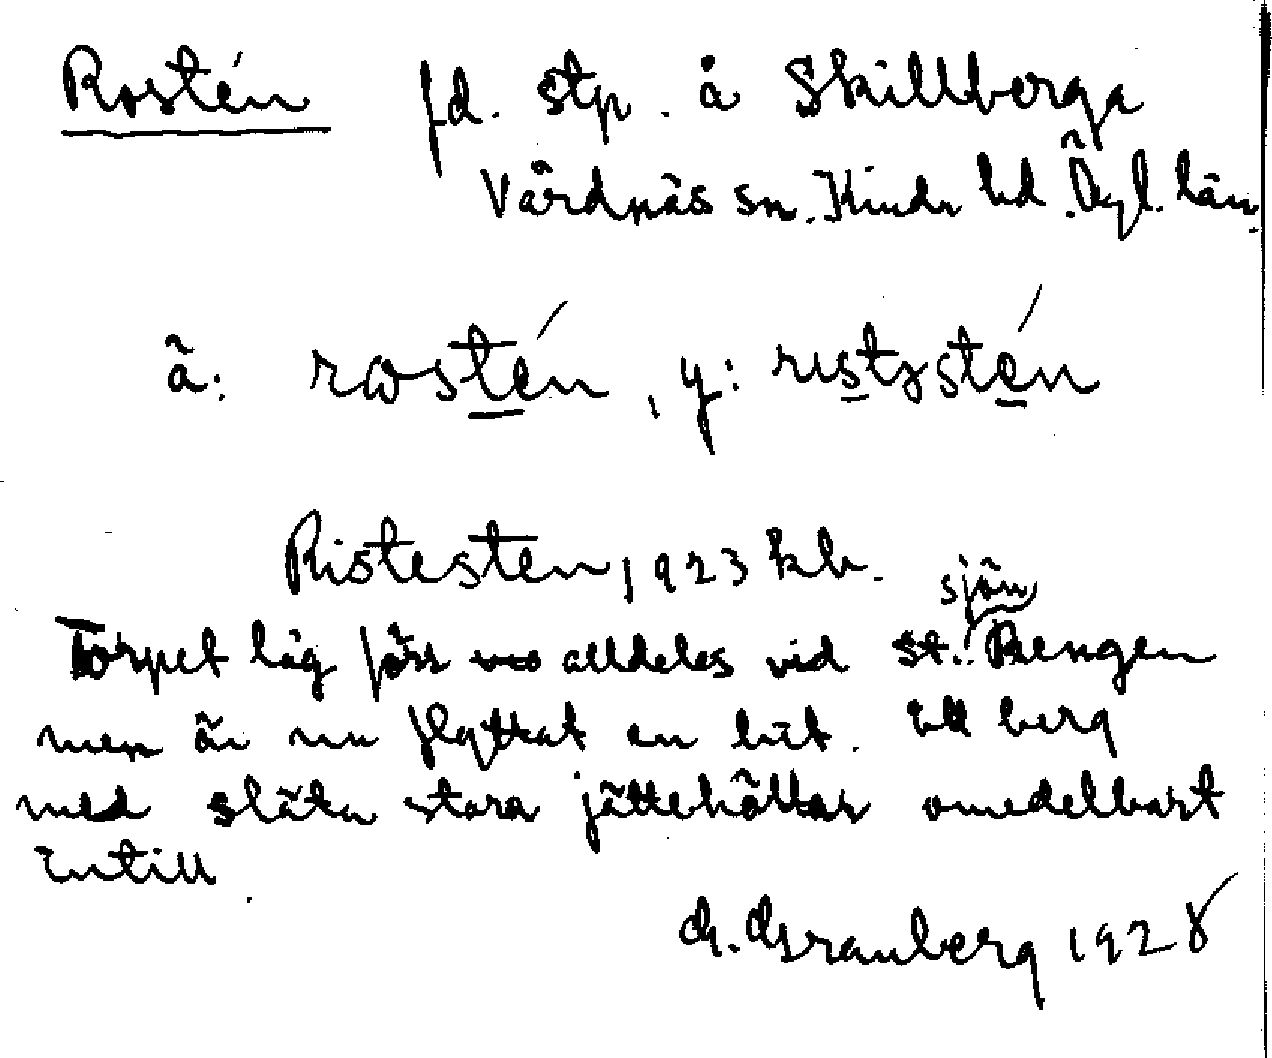 Rostén fd. stp. å Skillberga
Vårdnäs sn. Kinds hd. Ögl. län.
ä: rωstén, y: ristystén
Risteſten 1923 kb.
sjön
Torpet låg förr alldeles vid st. Rengen
men är nu flyttat en bit. Ett berg
med släta stora jättehällar omedelbart
intill.
G. Granberg 1928